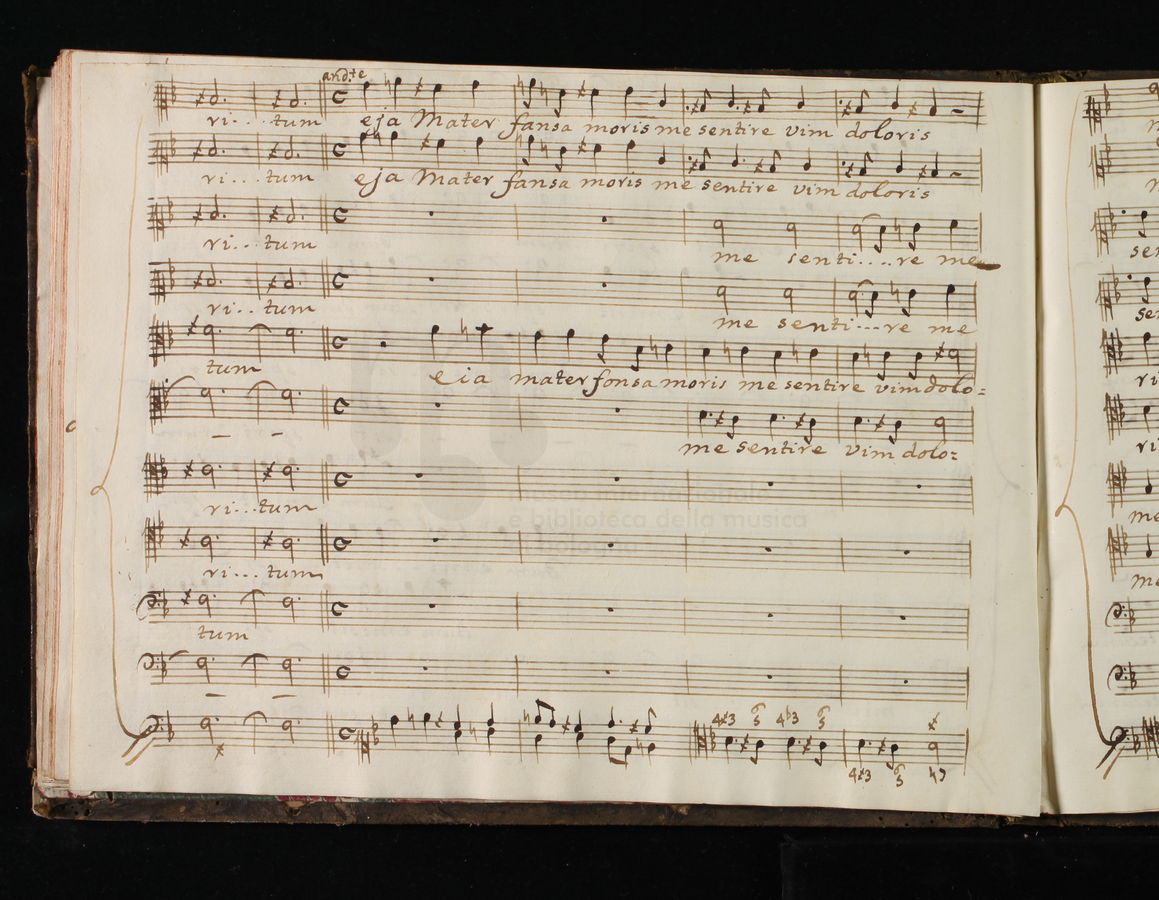 and.te
ri... tum eja Mater fansa moris me sentire vim doloris
ri... tum eja Mater fansa moris me sentire vim doloris
ri... tum me senti.....re me
ri... tum me senti....re me
tum eia mater fonsa moris me sentire vim dolo=
me sentire vim dolo=
ri... tum
museo internazionale
e biblioteca della musica
di bologna
ri... tum
tum